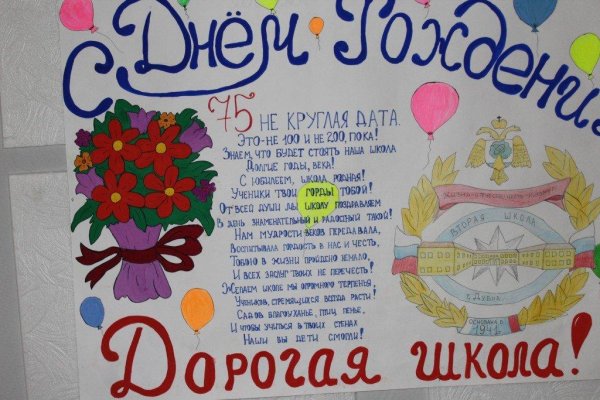 С Днём Рождения
75 НЕ КРУГЛАЯ ДАТА.
ЭТО-НЕ 100 И НЕ 200, ПОКА!
ЗНАЕМ, ЧТО БУДЕТ СТОЯТЬ НАША ШКОЛА
ДОЛГИЕ ГОДЫ, ВЕКА!
С ЮБИЛЕЕМ, ШКОЛА РОДНАЯ!
УЧЕНИКИ ТВОИ ГОРДЫ ТОБОЙ!
ОТ ВСЕЙ ДУШИ МЫ ШКОЛУ ПОЗДРАВЛЯЕМ
В ДЕНЬ ЗНАМЕНАТЕЛЬНЫЙ И РАДОСТНЫЙ ТАКОЙ!
НАМ МУДРОСТИ ВЕКОВ ПЕРЕДАВАЛА,
ВОСПИТЫВАЛА ГОРДОСТЬ В НАС И ЧЕСТЬ,
ТОБОЮ В ЖИЗНИ ПРОЙДЕНО НЕМАЛО,
И ВСЕХ ЗАСЛУГ ТВОИХ НЕ ПЕРЕЧЕСТЬ!
ЖЕЛАЕМ ШКОЛЕ МЫ ОГРОМНОГО ТЕРПЕНЬЯ,
УЧЕНИКОВ, СТРЕМЯЩИХСЯ ВСЕГДА РАСТИ!
САДОВ БЛАГОУХАНЬЕ, ПТИЦ ПЕНЬЕ,
И ЧТОБЫ УЧИТЬСЯ В ТВОИХ СТЕНАХ
НАШИ БЫ ДЕТИ СМОГЛИ!
ВТОРАЯ ШКОЛА
Г. ДУБНА
ОСНОВАНА В
1941
ДОРОГАЯ ШКОЛА!